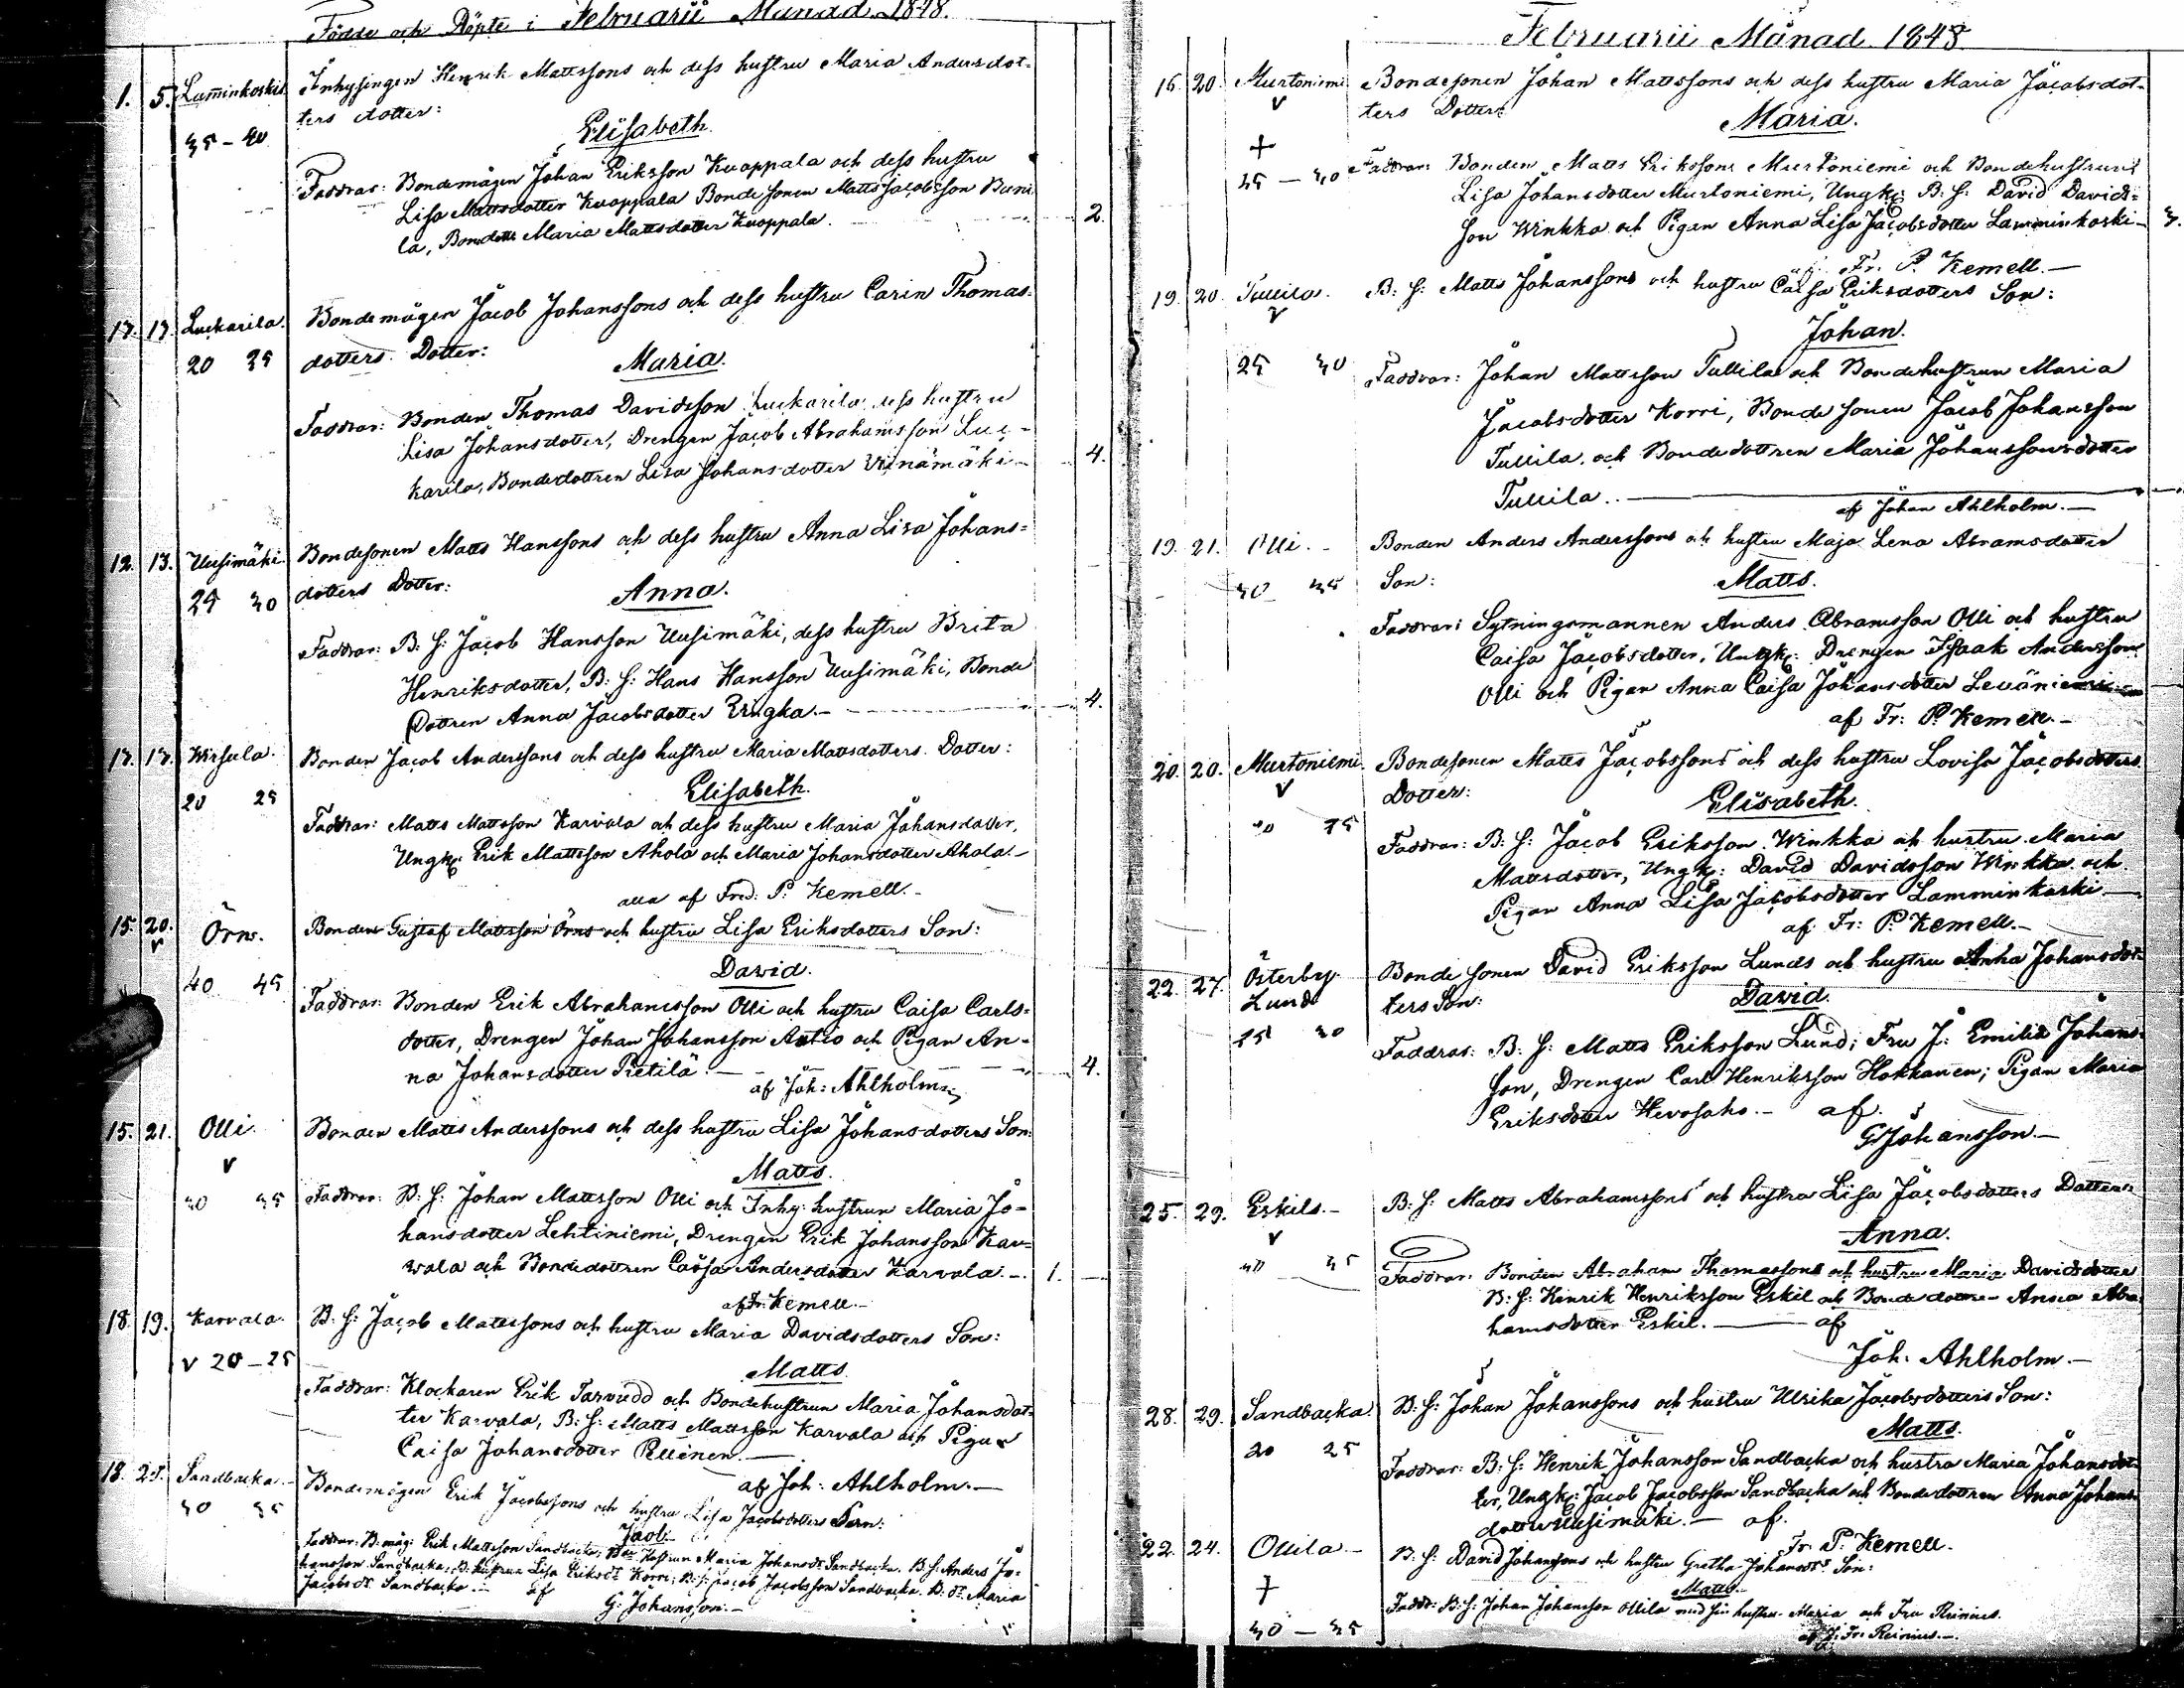 Födde och Döpte i Februarii Månad 1848.
1. 5. Lamminkoski Inhysingen Henrik Mattssons och dess hustru Maria Andersdot-
ters dotter:
35 - 40 Elisabeth.
Faddrar: Bondemågen Johan Eriksson Kuoppala och dess hustru
Lisa Mattsdotter Kuoppala Bondesonen Matts Jacobsson
la, Maria Mattsdotter Kuoppala. 2.
17. 17. Luckarila. Bondemågen Jacob Johanssons och dess hustru Carin Thomas-
20 25 dotters Dotter:
Maria.
Faddrar: Bonden Thomas Davidsson Luckarila dess hustru
Lisa Johansdotter, Drengen Jacob Abrahamsson Luc-
karila, Bondedottren Lisa Johansdotter 4.
12. 13. Uusimäki Bondesonen Matts Hanssons och dess hustru Anna Lisa Johans-
25 30 dotters Dotter:
Anna.
Faddrar: B: S: Jacob Hansson Uusimäki, dess hustru Brita
Henriksdotter, B: S: Hans Hansson Uusimäki, Bonde
Dottren Anna Jacobsdotter 4.
17. 17. Wirsula. Bonden Jacob Anderssons och dess hustru Maria Mattsdotters Dotter:
20 25 Elisabeth.
Faddrar: Matts Mattsson Karvala och dess hustru Maria Johansdotter,
Ungk: Erik Mattsson Ahola och Maria Johansdotter Ahola.-
alla af Fred: P. Kemell.-
15. 20. Örns. Bonden Gustaf Mattsson Örns och hustru Lisa Eriksdotters Son:
v
40 45 David.
Faddrar: Bonden Erik Abrahamsson Olli och hustru Caisa Carls-
dotter, Drengen Johan Johansson Antio och Pigan An-
na Johansdotter Pietilä. 4.
af Joh: Ahlholm
15. 21. Olli. Bonden Matts Anderssons och dess hustru Lisa Johansdotters Son:
v Matts.
30 35 Faddrar: B: S: Johan Mattsson Olli och Inhy: hustrun Maria Jo-
hansdotter Lehtiniemi, Drengen Erik Johansson Kar-
vala och Bondedottren Caisa Andersdotter Karvala.- 1.
af Fr. Kemell.-
18. 19. Karvala. B: S: Jacob Mattssons och hustru Maria Davidsdotters Son:
v 20 - 25 Matts.
Faddrar: Klockaren Erik Tarvudd och Bondehustrun Maria Johansdot-
ter Karvala, B: S: Matts Mattsson Karvala och Pigan
Caisa Johansdotter Pellinen.
af Joh: Ahlholm.-
18. Sandbacka.- Bondemågen Erik Jacobssons och hustru Lisa Jacobsdotters Son:
30 35 Jacob.
Faddrar: B: måg: Erik Mattsson Sandbacka, Hustrun Maria Johansdr Sandbacka. B: S: Anders Jo-
hansson Sandbacka, B: hustrun Lisa Eriksdr Korri, B: S: Jacob Jacobsson Sandbacka. B: dr Maria
Jacobsdr Sandbacka.- af
G: Johansson.-
Februarii Månad 1848
16. 20. Murtoniemi Bondesonen Johan Mattssons och dess hustru Maria Jacobsdot-
v ters Dotter:
+ Maria.
35 - 40 Faddrar: Bonden Matts Erikssons Murtoniemi och Bondehustrun
Lisa Johansdotter Murtoniemi, Ungk: B: S: David Davids-
son Winkka och Pigan Anna Lisa Jacobsdotter Lamminkoski- 3.
Fr. P. Kemell.-
19. 20. Tullila. B: S: Matts Johanssons och hustru Caisa Eriksdotters Son:
v Johan.
25 30 Faddrar: Johan Mattsson Tullila och Bondehustrun Maria
Jacobsdotter Korri, Bondesonen Jacob Johansson
Tullila, och Bondedottren Maria Johanssonsdotter
Tullila.
af Johan Ahlholm.-
19. 21. Olli.- Bonden Anders Anderssons och hustru Maja Lena Abramsdotter
30 35 Son: Matts.
Faddrar: Sytningsmannen Anders Abramsson Olli och hustru
Caisa Jacobsdotter, Ungk: Drengen Isaak Andersson
Olli och Pigan Anna Caisa Johansdotter Leväniemi
af Fr: P. Kemell.-
20. 20. Murtoniemi. Bondesonen Matts Jacobssons och dess hustru Lovisa Jacobsdotters
v Dotter: Elisabeth.
Faddrar: B: S: Jacob Eriksson Winkka och hustru Maria
Mattsdotter, Ungk: David Davidsson Winkka och
Pigan Anna Lisa Jacobsdotter Lamminkoski
af Fr: P. Kemell.-
22. 27. Österby Bondesonen David Eriksson Lunds och hustru Anna Johansdot-
Lund ters Son: David.
Faddrar: B: S: Matts Eriksson Lund; Fru J: Emilia Johans-
son, Drengen Carl Henriksson Hokkanen; Pigan Maria
Eriksdotter Hevosaho.- af
G Johansson.-
25. 29. Eskils.- B: S: Matts Abrahamssons och hustru Lisa Jacobsdotters Dotter:
v Anna.
Faddrar: Bonden Abraham Thomassons och hustru Maria Davidsdotter
B: S: Henrik Henriksson Eskil och Bondedotter Anna Abra-
hamsdotter Eskil. af
Joh. Ahlholm.-
28. 29. Sandbacka. B: S: Johan Johanssons och hustru Ulrika Jacobsdotters Son:
20 25 Matts.
Faddrar: B: S: Henrik Johansson Sandbacka och hustru Maria Johansdot-
ter, Ungk: Jacob Jacobsson Sandbacka och Bondedottren Anna Johans-
dotter Uusimäki.- af
Fr P. Kemell.
22. 24. Ollila.- B: S: David Johanssons och hustru Gretha Johansdr Son:
+ Matts.-
30 - 35 Faddr: B: S: Johan Johansson Ollila med sin hustru Maria och Fru Reinius.
af J. Fr. Reinius.-